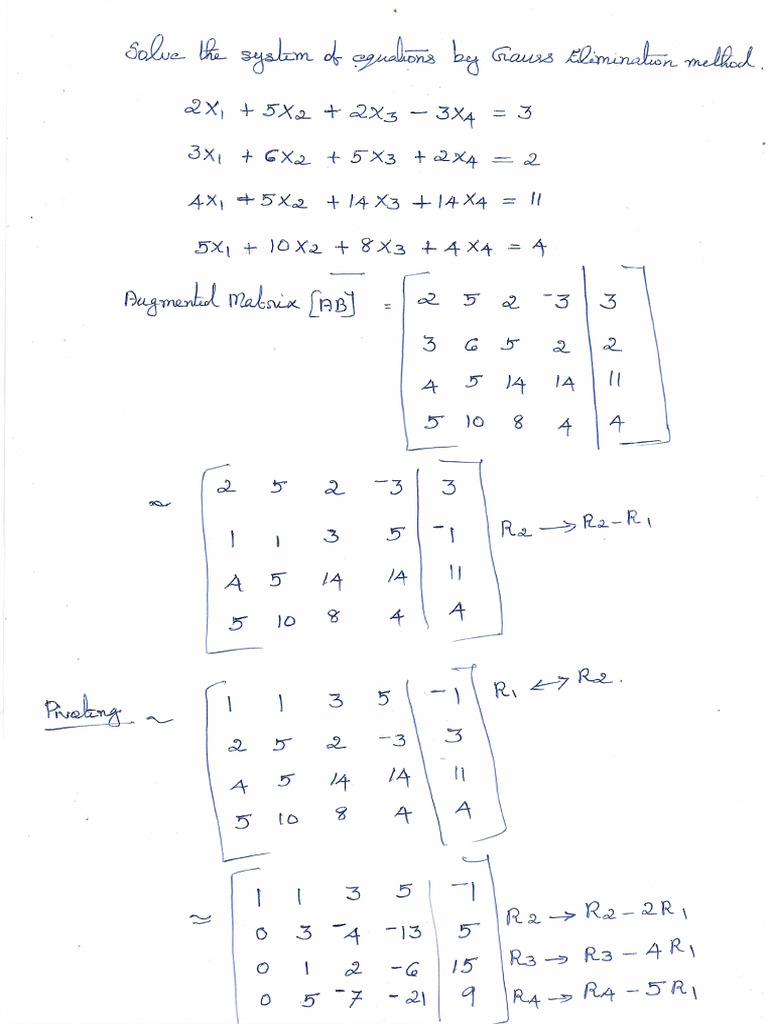 Solve the system of equations by Gauss Elimination method.
2x₁ + 5x₂ + 2x₃ − 3x₄ = 3
3x₁ + 6x₂ + 5x₃ + 2x₄ = 2
4x₁ + 5x₂ + 14x₃ + 14x₄ = 11
5x₁ + 10x₂ + 8x₃ + 4x₄ = 4
Augmented Matrix [AB] = [ 2 5 2 -3 | 3
3 6 5 2 | 2
4 5 14 14 | 11
5 10 8 4 | 4 ]
~ [ 2 5 2 -3 | 3
1 1 3 5 | -1 R₂ → R₂-R₁
4 5 14 14 | 11
5 10 8 4 | 4 ]
Pivoting ~ [ 1 1 3 5 | -1 R₁ ↔ R₂.
2 5 2 -3 | 3
4 5 14 14 | 11
5 10 8 4 | 4 ]
≈ [ 1 1 3 5 | -1
0 3 -4 -13 | 5 R₂ → R₂-2R₁
0 1 2 -6 | 15 R₃ → R₃-4R₁
0 5 -7 -21 | 9 R₄ → R₄-5R₁